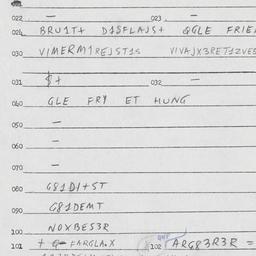 022 — 023 —
024 BRU1T+ D1SFLAJS+ QGLE FRIE
030 VIMERM1REJST1S VIVAJX3RET1ZVES
031 $+ 032 —
040 GLE FRY ET HUNG
050 —
060 —
070 —
080 G81D1+ST
090 G81DEMT
100 NOXBES3R
101 + FARGLA.X 102 ARG83R3R =